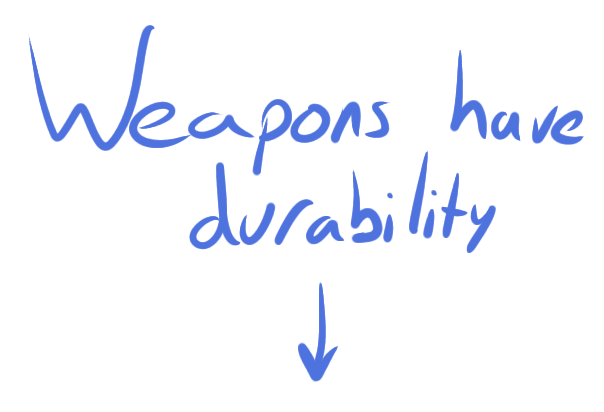 Weapons have
durability